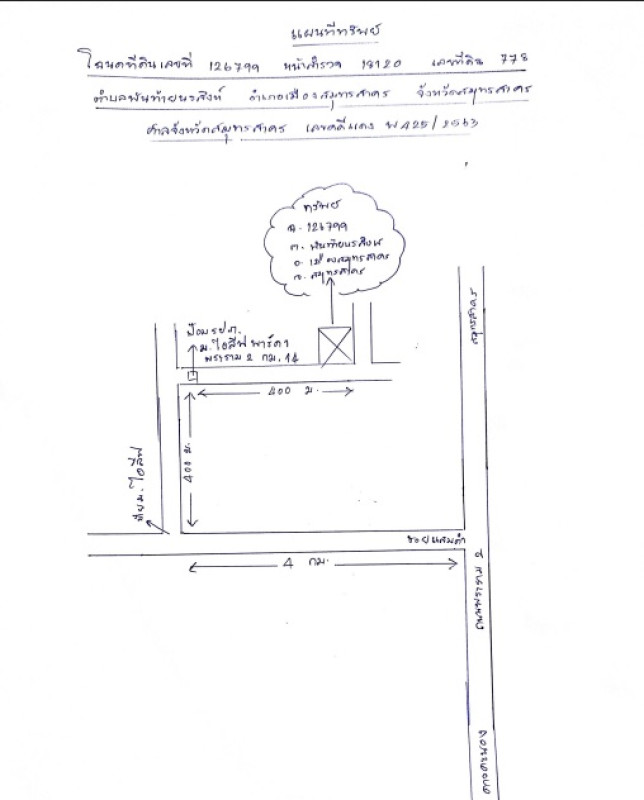 แผนที่ทรัพย์
โฉนดที่ดินเลขที่ 126799 หน้าสำรวจ 18120 เลขที่ดิน 778
ตำบลพันท้ายนรสิงห์ อำเภอเมืองสมุทรสาคร จังหวัดสมุทรสาคร
ศาลจังหวัดสมุทรสาคร เลขคดีแดง พ 425/2563
ทรัพย์
ฉ. 126799
ต. พันท้ายนรสิงห์
อ. เมืองสมุทรสาคร
จ. สมุทรสาคร
ป้อม รปภ.
ม. ไอลีฟ พาร์ค 1
พระราม 2 กม. 14
400 ม.
400 ม.
ม. ไอลีฟ
ซอยแสมดำ
4 กม.
สมุทรสาคร
ถนนพระราม 2
ดาวคะนอง